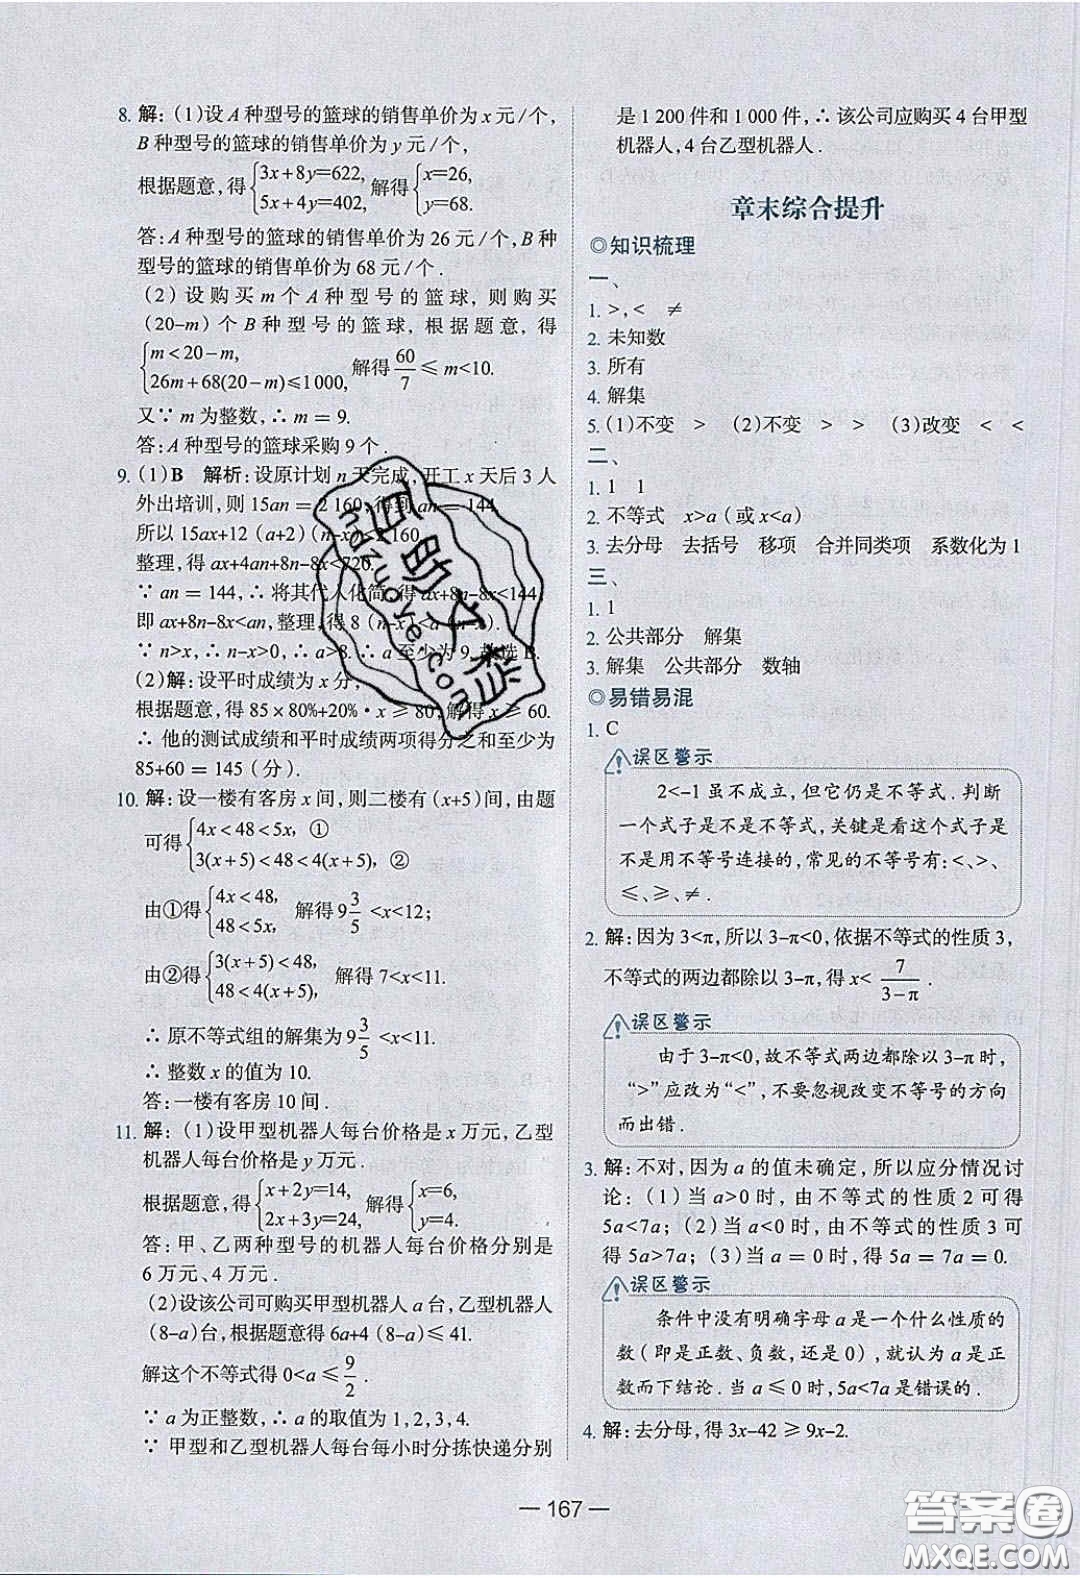 8. 解:(1)设A种型号的篮球的销售单价为x元/个,
B种型号的篮球的销售单价为y元/个,
根据题意,得{3x+8y=622, 5x+4y=402, 解得{x=26, y=68.
答:A种型号的篮球的销售单价为26元/个,B种
型号的篮球的销售单价为68元/个.
(2)设购买m个A种型号的篮球,则购买
(20-m)个B种型号的篮球,根据题意,得
{m<20-m, 26m+68(20-m)≤1 000, 解得60/7≤m<10.
又∵m为整数,∴m=9.
答:A种型号的篮球采购9个.
9. (1)B 解析:设原计划n天完成,开工x天后3人
外出培训,则15an=2 160,得到an=144.
所以15ax+12(a+2)(n-x)<2 160.
整理,得ax+4an+8n-8x<720.
∵an=144,∴将其代入化简,得ax+8n-8x<144,
即ax+8n-8x<an,整理,得8(n-x)<a(n-x).
∵n>x,∴n-x>0,∴a>8.∴a至少为9.故选B.
(2)解:设平时成绩为x分,
根据题意,得85×80%+20%·x≥80,解得x≥60.
∴他的测试成绩和平时成绩两项得分之和至少为
85+60=145(分).
10. 解:设一楼有客房x间,则二楼有(x+5)间,由题
可得{4x<48<5x,① 3(x+5)<48<4(x+5),②
由①得{4x<48, 48<5x, 解得9 3/5<x<12;
由②得{3(x+5)<48, 48<4(x+5), 解得7<x<11.
∴原不等式组的解集为9 3/5<x<11.
∴整数x的值为10.
答:一楼有客房10间.
11. 解:(1)设甲型机器人每台价格是x万元,乙型
机器人每台价格是y万元.
根据题意,得{x+2y=14, 2x+3y=24, 解得{x=6, y=4.
答:甲、乙两种型号的机器人每台价格分别是
6万元、4万元.
(2)设该公司可购买甲型机器人a台,乙型机器人
(8-a)台,根据题意得6a+4(8-a)≤41.
解这个不等式得0<a≤9/2.
∵a为正整数,∴a的取值为1,2,3,4.
∵甲型和乙型机器人每台每小时分拣快递分别
是1 200件和1 000件,∴该公司应购买4台甲型
机器人,4台乙型机器人.
章末综合提升
◎知识梳理
一、
1. >,< ≠
2. 未知数
3. 所有
4. 解集
5. (1)不变 > (2)不变 > > (3)改变 < <
二、
1. 1 1
2. 不等式 x>a(或x<a)
3. 去分母 去括号 移项 合并同类项 系数化为1
三、
1. 1
2. 公共部分 解集
3. 解集 公共部分 数轴
◎易错易混
1. C
误区警示
2<-1虽不成立,但它仍是不等式.判断
一个式子是不是不等式,关键是看这个式子是
不是用不等号连接的,常见的不等号有:<、>、
≤、≥、≠.
2. 解:因为3<π,所以3-π<0,依据不等式的性质3,
不等式的两边都除以3-π,得x<7/(3-π).
误区警示
由于3-π<0,故不等式两边都除以3-π时,
“>”应改为“<”,不要忽视改变不等号的方向
而出错.
3. 解:不对,因为a的值未确定,所以应分情况讨
论:(1)当a>0时,由不等式的性质2可得
5a<7a;(2)当a<0时,由不等式的性质3可
得5a>7a;(3)当a=0时,得5a=7a=0.
误区警示
条件中没有明确字母a是一个什么性质的
数(即是正数、负数,还是0),就认为a是正
数而下结论.当a≤0时,5a<7a是错误的.
4. 解:去分母,得3x-42≥9x-2.
— 167 —
答案圈
MXQE.COM